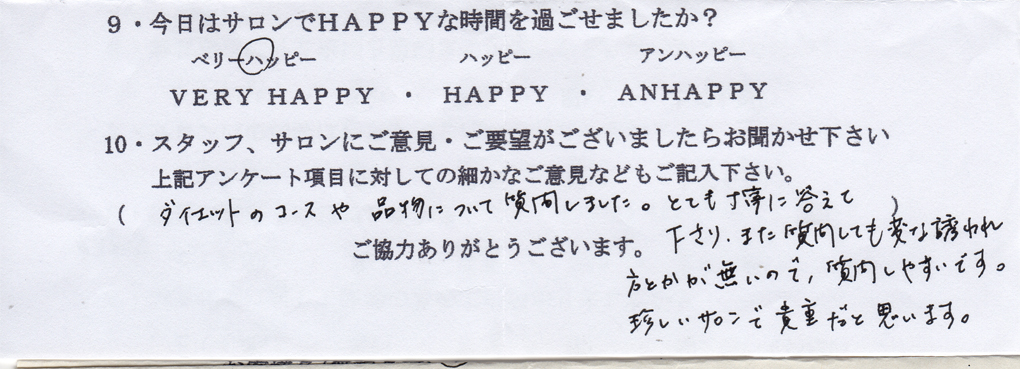 ９・今日はサロンでＨＡＰＰＹな時間を過ごせましたか？
ベリーハッピー　ハッピー　アンハッピー
ＶＥＲＹ ＨＡＰＰＹ ・ ＨＡＰＰＹ ・ ＡＮＨＡＰＰＹ
10・スタッフ、サロンにご意見・ご要望がございましたらお聞かせ下さい
上記アンケート項目に対しての細かなご意見などもご記入下さい。
( ダイエットのコースや 品物について質問しました。とても丁寧に答えて )
下さり、また質問しても変な誘われ
ご協力ありがとうございます。
方とかが無いので、質問しやすいです。
珍しいサロンで貴重だと思います。